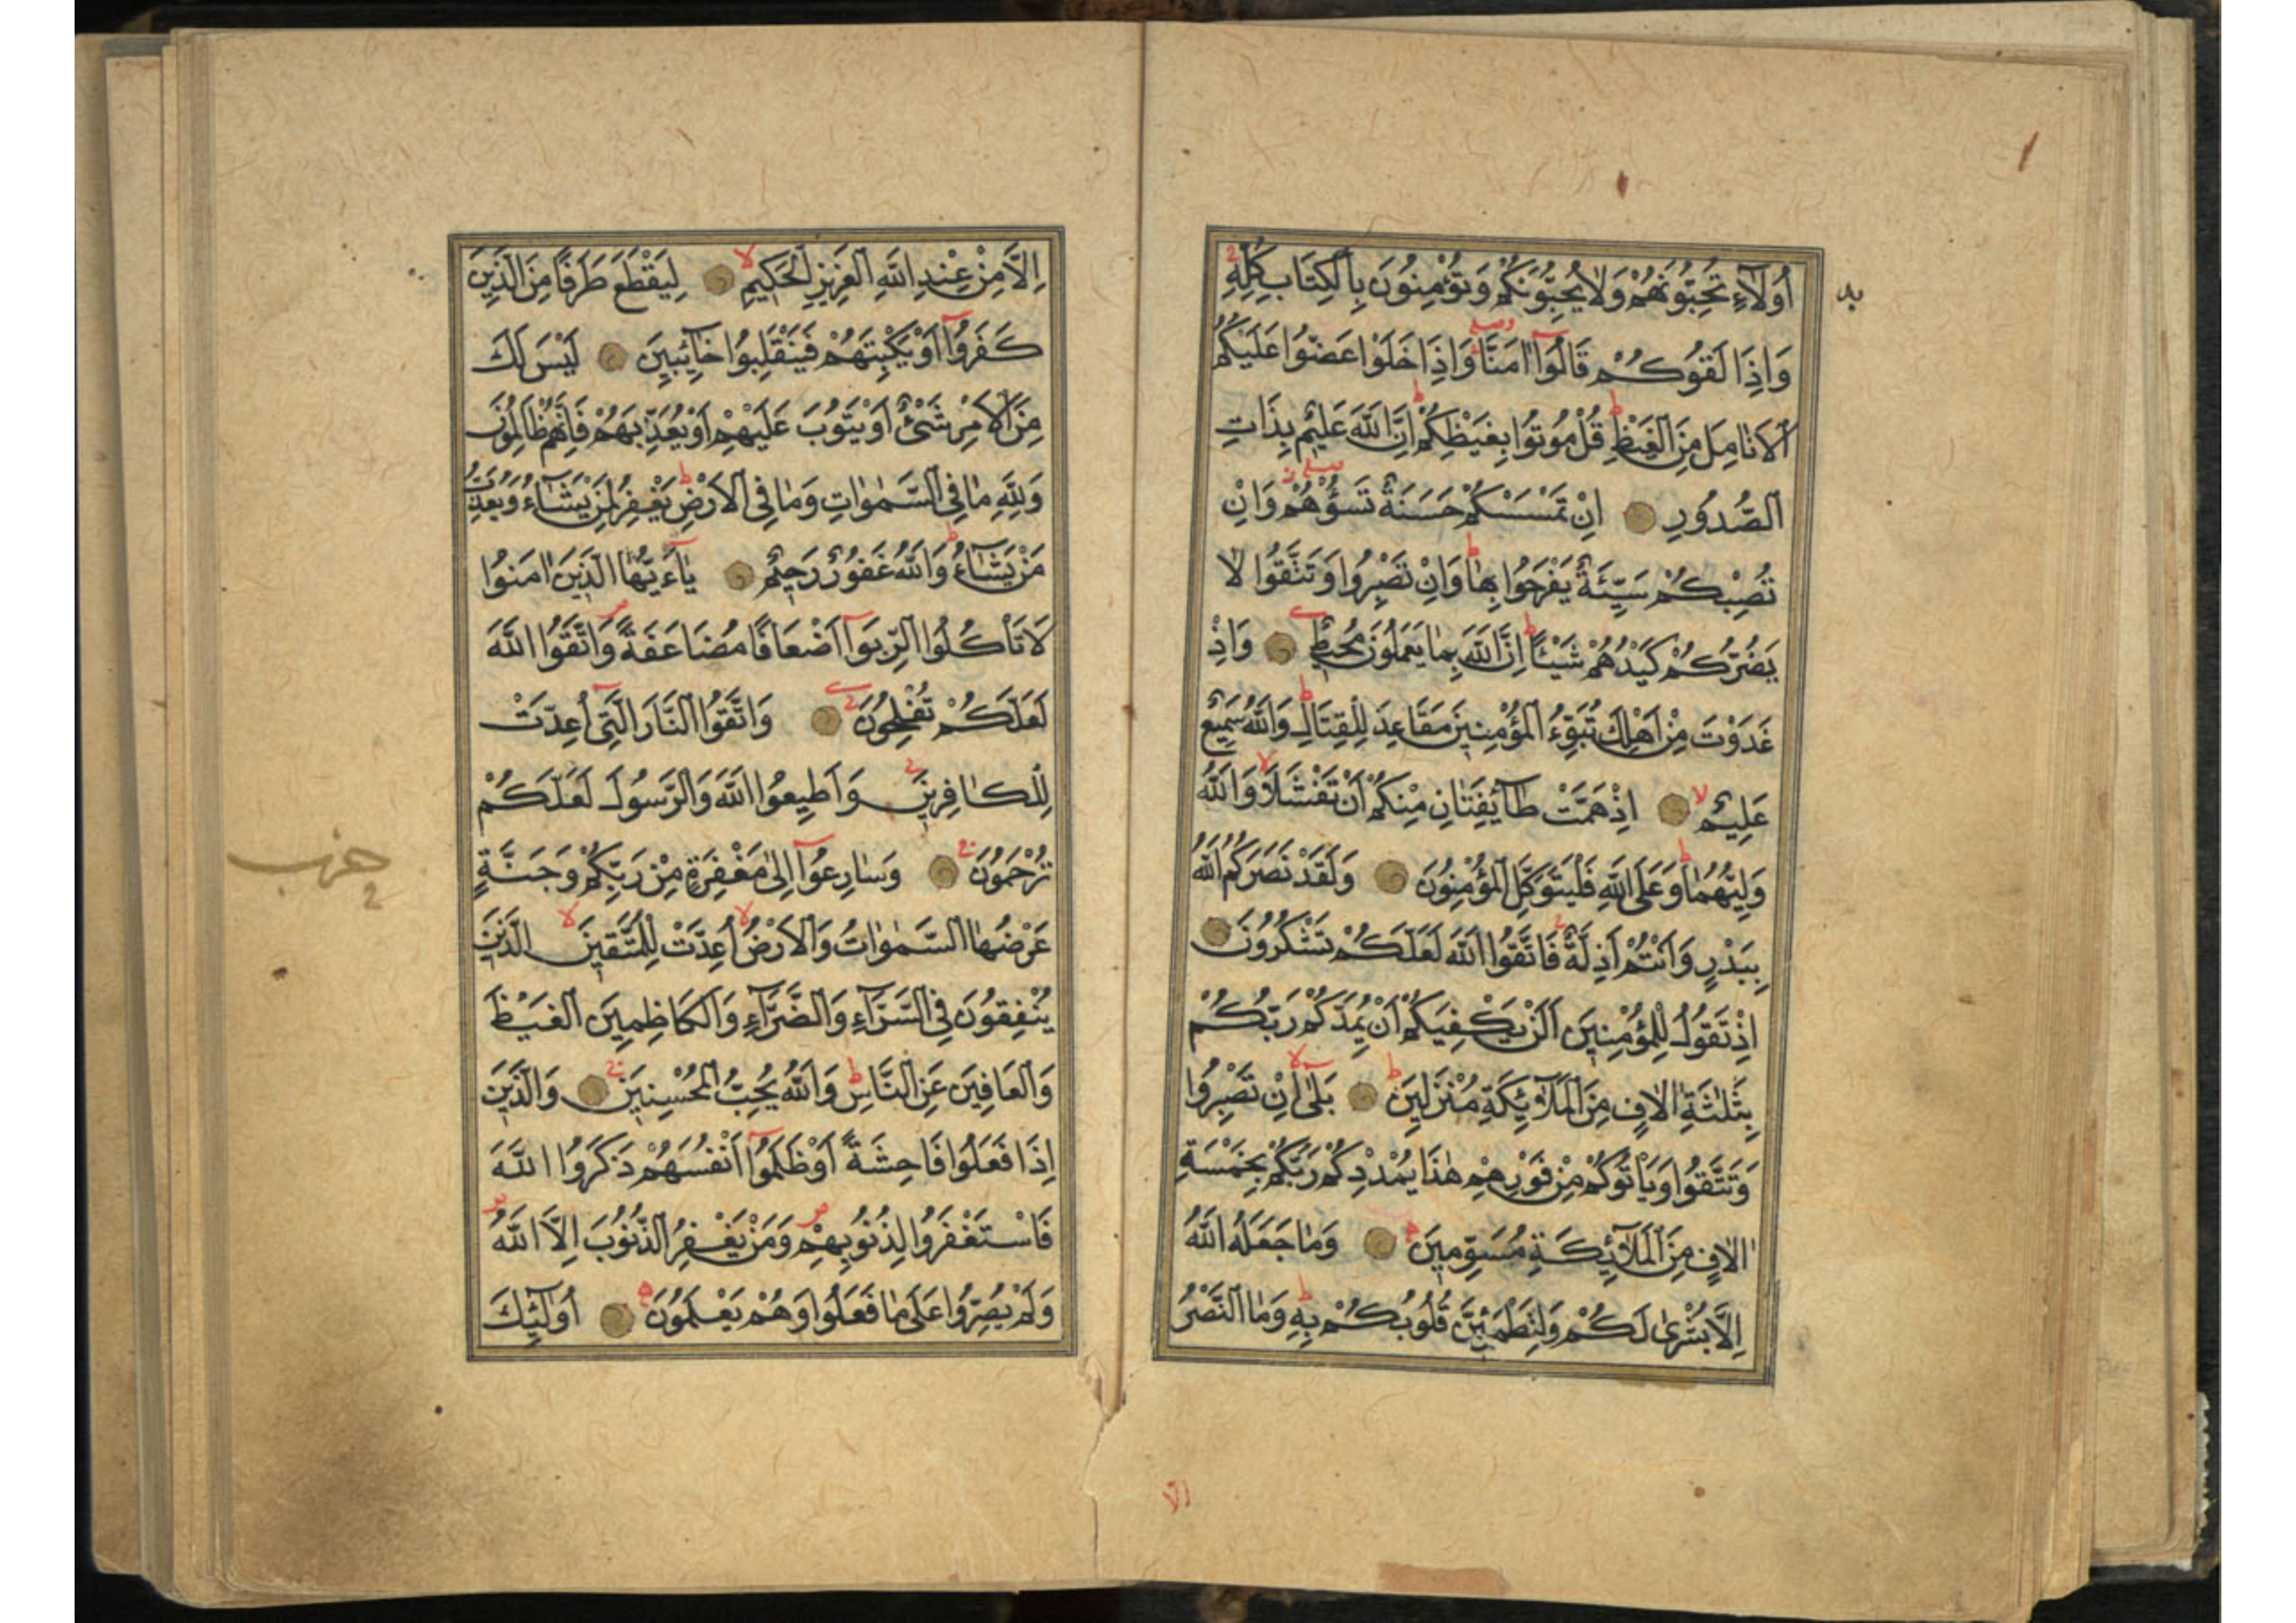 أُولَاءِ تُحِبُّونَهُمْ وَلَا يُحِبُّونَكُمْ وَتُؤْمِنُونَ بِالْكِتَابِ كُلِّهِ
وَاِذَا لَقُوكُمْ قَالُوا اٰمَنَّا وَاِذَا خَلَوْا عَضُّوا عَلَيْكُمُ
الْاَنَامِلَ مِنَ الْغَيْظِ قُلْ مُوتُوا بِغَيْظِكُمْ اِنَّ اللّٰهَ عَلِيمٌ بِذَاتِ
الصُّدُورِ اِنْ تَمْسَسْكُمْ حَسَنَةٌ تَسُؤْهُمْ وَاِنْ
تُصِبْكُمْ سَيِّئَةٌ يَفْرَحُوا بِهَا وَاِنْ تَصْبِرُوا وَتَتَّقُوا لَا
يَضُرُّكُمْ كَيْدُهُمْ شَيْئًا اِنَّ اللّٰهَ بِمَا يَعْمَلُونَ مُحِيطٌ وَاِذْ
غَدَوْتَ مِنْ اَهْلِكَ تُبَوِّئُ الْمُؤْمِنِينَ مَقَاعِدَ لِلْقِتَالِ وَاللّٰهُ سَمِيعٌ
عَلِيمٌ اِذْ هَمَّتْ طَآئِفَتَانِ مِنْكُمْ اَنْ تَفْشَلَا وَاللّٰهُ
وَلِيُّهُمَا وَعَلَى اللّٰهِ فَلْيَتَوَكَّلِ الْمُؤْمِنُونَ وَلَقَدْ نَصَرَكُمُ اللّٰهُ
بِبَدْرٍ وَاَنْتُمْ اَذِلَّةٌ فَاتَّقُوا اللّٰهَ لَعَلَّكُمْ تَشْكُرُونَ
اِذْ تَقُولُ لِلْمُؤْمِنِينَ اَلَنْ يَكْفِيَكُمْ اَنْ يُمِدَّكُمْ رَبُّكُمْ
بِثَلٰثَةِ اٰلَافٍ مِنَ الْمَلَآئِكَةِ مُنْزَلِينَ بَلٰى اِنْ تَصْبِرُوا
وَتَتَّقُوا وَيَأْتُوكُمْ مِنْ فَوْرِهِمْ هٰذَا يُمْدِدْكُمْ رَبُّكُمْ بِخَمْسَةِ
اٰلَافٍ مِنَ الْمَلَآئِكَةِ مُسَوِّمِينَ وَمَا جَعَلَهُ اللّٰهُ
اِلَّا بُشْرٰى لَكُمْ وَلِتَطْمَئِنَّ قُلُوبُكُمْ بِهِ وَمَا النَّصْرُ
اِلَّا
اِلَّا مِنْ عِنْدِ اللّٰهِ الْعَزِيزِ الْحَكِيمِ لِيَقْطَعَ طَرَفًا مِنَ الَّذِينَ
كَفَرُوا اَوْ يَكْبِتَهُمْ فَيَنْقَلِبُوا خَآئِبِينَ لَيْسَ لَكَ
مِنَ الْاَمْرِ شَيْءٌ اَوْ يَتُوبَ عَلَيْهِمْ اَوْ يُعَذِّبَهُمْ فَاِنَّهُمْ ظَالِمُونَ
وَلِلّٰهِ مَا فِي السَّمٰوَاتِ وَمَا فِي الْاَرْضِ يَغْفِرُ لِمَنْ يَشَآءُ وَيُعَذِّبُ
مَنْ يَشَآءُ وَاللّٰهُ غَفُورٌ رَحِيمٌ يَآءَيُّهَا الَّذِينَ اٰمَنُوا
لَا تَأْكُلُوا الرِّبَوا اَضْعَافًا مُضَاعَفَةً وَاتَّقُوا اللّٰهَ
لَعَلَّكُمْ تُفْلِحُونَ وَاتَّقُوا النَّارَ الَّتِي اُعِدَّتْ
لِلْكَافِرِينَ وَاَطِيعُوا اللّٰهَ وَالرَّسُولَ لَعَلَّكُمْ
تُرْحَمُونَ وَسَارِعُوا اِلٰى مَغْفِرَةٍ مِنْ رَبِّكُمْ وَجَنَّةٍ
عَرْضُهَا السَّمٰوَاتُ وَالْاَرْضُ اُعِدَّتْ لِلْمُتَّقِينَ الَّذِينَ
يُنْفِقُونَ فِي السَّرَّآءِ وَالضَّرَّآءِ وَالْكَاظِمِينَ الْغَيْظَ
وَالْعَافِينَ عَنِ النَّاسِ وَاللّٰهُ يُحِبُّ الْمُحْسِنِينَ وَالَّذِينَ
اِذَا فَعَلُوا فَاحِشَةً اَوْ ظَلَمُوا اَنْفُسَهُمْ ذَكَرُوا اللّٰهَ
فَاسْتَغْفَرُوا لِذُنُوبِهِمْ وَمَنْ يَغْفِرُ الذُّنُوبَ اِلَّا اللّٰهُ
وَلَمْ يُصِرُّوا عَلٰى مَا فَعَلُوا وَهُمْ يَعْلَمُونَ اُولٰٓئِكَ
حزب